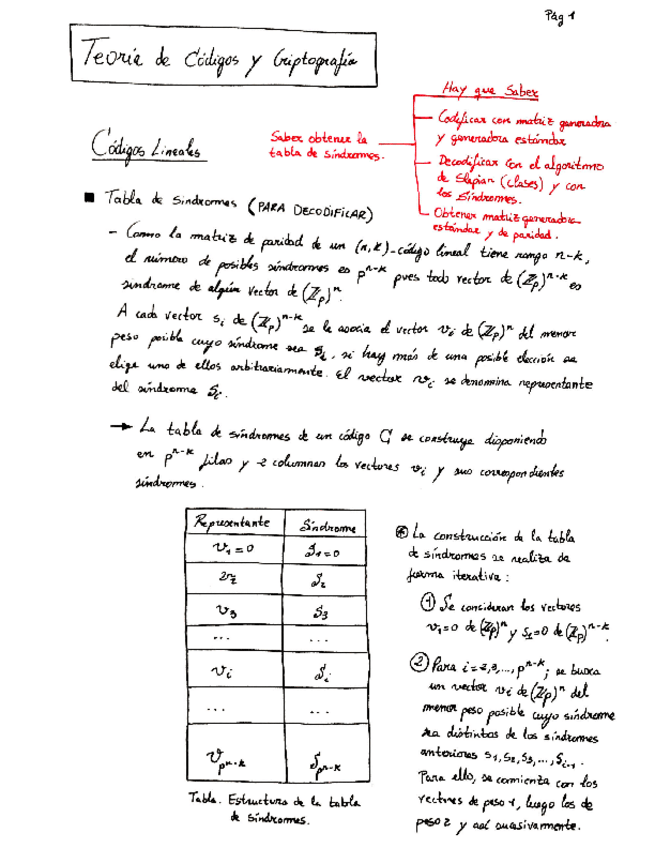 Pág 1
Teoría de Códigos y Criptografía
Hay que Saber
Codificar con matriz generadora
y generadora estándar
Saber obtener la
tabla de síndromes.
Decodificar con el algoritmo
de Slepian (clases) y con
los síndromes.
Obtener matriz generadora
estándar y de paridad.
Códigos Lineales
■ Tabla de Síndromes (PARA DECODIFICAR)
- Como la matriz de paridad de un (n,k)-código lineal tiene rango n-k,
el número de posibles síndromes es p^{n-k} pues todo vector de (ℤp)^{n-k} es
síndrome de algún vector de (ℤp)^n.
A cada vector s_i de (ℤp)^{n-k} se le asocia el vector v_i de (ℤp)^n del menor
peso posible cuyo síndrome sea s_i, si hay más de una posible elección se
elige uno de ellos arbitrariamente. El vector v_i se denomina representante
del síndrome s_i.
→ La tabla de síndromes de un código C se construye disponiendo
en p^{n-k} filas y 2 columnas los vectores v_i y sus correspondientes
síndromes.
Representante Síndrome
v_1=0 s_1=0
v_2 s_2
v_3 s_3
... ...
v_i s_i
... ...
v_{p^{n-k}} s_{p^{n-k}}
Tabla. Estructura de la tabla
de síndromes.
* La construcción de la tabla
de síndromes se realiza de
forma iterativa:
① Se consideran los vectores
v_1=0 de (ℤp)^n y s_1=0 de (ℤp)^{n-k}.
② Para i=2,3,...,p^{n-k}; se busca
un vector v_i de (ℤp)^n del
menor peso posible cuyo síndrome
sea distintos de los síndromes
anteriores s_1,s_2,s_3,...,s_{i-1}.
Para ello, se comienza con los
vectores de peso 1, luego los de
peso 2 y así sucesivamente.